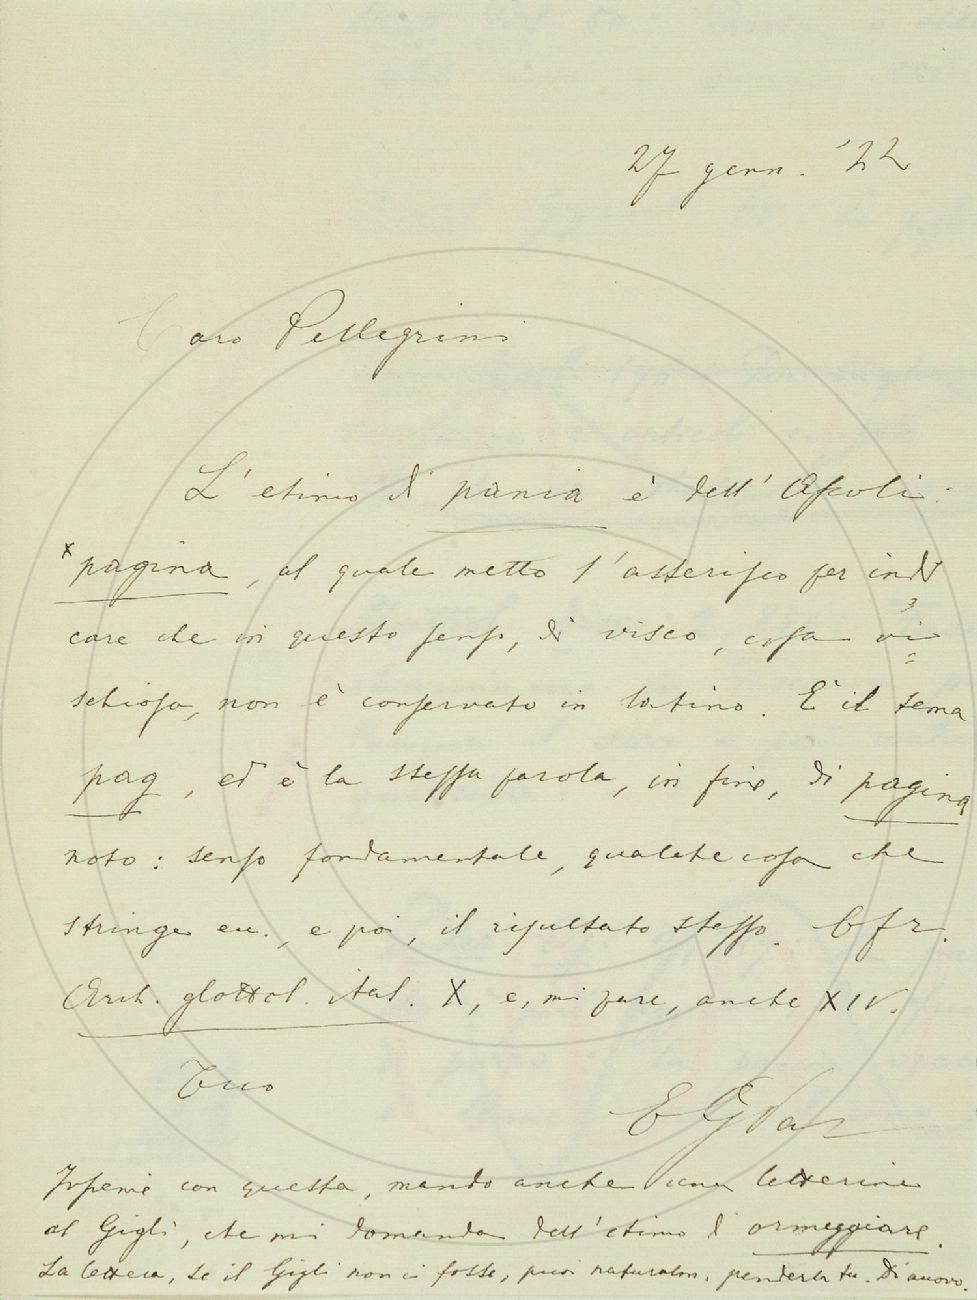 27 genn. '22
Caro Pellegrini
L'etimo di pania è dell'Ascoli:
*pagina, al quale metto l'asterisco per indi
care che in questo senso, di visco, cosa vi
schiosa, non è conservato in latino. È il tema
pag, ed è la stessa parola, in fine, di pagina
noto: senso fondamentale, qualche cosa che
stringe ecc., e poi, il risultato stesso. Cfr.
Arch. glottol. ital. X, e, mi pare, anche XIV.
Tuo
E G Par
Insieme con questa, mando anche una letterina
al Gigli, che mi domanda dell'etimo d ormeggiare.
La lettera, se il Gigli non ci fosse, puoi naturalm. prenderla tu. Di nuovo.